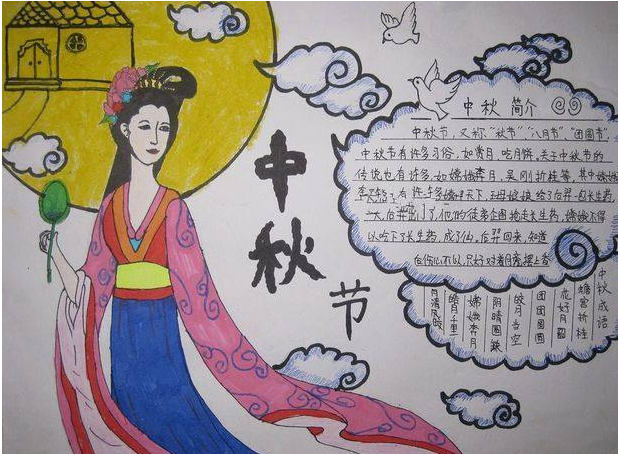 中秋节
中秋简介
中秋节，又称"秋节""八月节""团圆节"，
中秋节有许多习俗，如赏月，吃月饼，关于中秋节的
传说也有许多，如嫦娥奔月，吴刚折桂等，其中嫦娥
有许多 天下，王母娘娘给了后羿一包长生药，
后羿出门了，他的徒弟企图抢走长生药，嫦娥不得
以吃下了长生药，成了仙，后羿回来，知道
后伤心不以，只好对着月亮摆上香
中秋成语
蟾宫折桂
花好月圆
团团圆圆
皓月当空
阴晴圆缺
嫦娥奔月
皓月千里
月